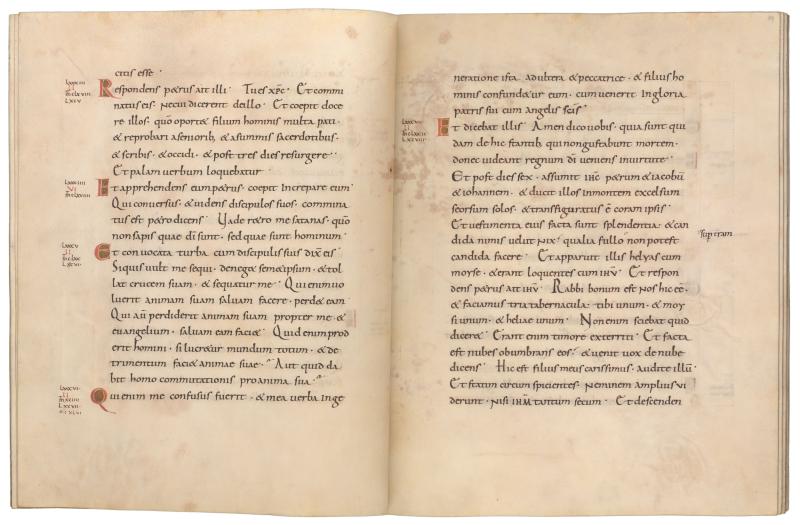 citis esse
Respondens petrus ait illi. Tu es xpc. Et commi
natus est. Ne cui dicerent de illo. Et coepit doce
re illos. quo oportet filium hominis multa pati.
& reprobari a seniorib; & a summis sacerdotibus.
& scribis. & occidi. & post tres dies resurgere.
Et palam uerbum loquebatur
Et apprehendens eum petrus. coepit increpare eum.
Qui conuersus. & uidens discipulos suos. commina
tus est petro dicens. Vade retro me satanas. quo
non sapis quae di sunt. sed quae sunt hominum
Et conuocata turba cum discipulis suis dixit eis.
Si quis uult me sequi. deneget semetipsum. & tol
lat crucem suam. & sequatur me. Qui enim uo
luerit animam suam saluam facere. perdet eam
Qui au perdiderit animam suam propter me. &
euangelium. saluam eam faciet. Quid enim prod
erit homini. si lucretur mundum totum. & de
trimentum faciat animae suae. Aut quid da
bit homo commutationis pro anima sua.
Qui enim me confusus fuerit. & mea uerba in ge
neratione ista adultera & peccatrice. & filius ho
minis confundetur eum. cum uenerit in gloria
patris sui cum angelis scis
Et dicebat illis. Amen dico uobis. quia sunt qui
dam de hic stantib; qui non gustabunt mortem.
donec uideant regnum di ueniens in uirtute.
Et post dies sex. assumit ihc petrum & iacobu
& iohannem. & ducit illos in montem excelsum
seorsum solos. & transfiguratus e coram ipsis.
Et uestimenta eius facta sunt splendentia. & can
dida nimis uelut nix. qualia fullo non potest
sup terram
candida facere. Et apparuit illis helyas cum
moyse. & erant loquentes cum ihu. Et respon
dens petrus ait ihu. Rabbi bonum est nos hic ee.
& faciamus tria tabernacula. tibi unum. & moy
si unum. & heliae unum. Non enim sciebat quid
diceret. Erant enim timore exterriti. Et facta
est nubes obumbrans eos. & uenit uox de nube
dicens. Hic est filius meus carissimus. audite illu.
Et statim circumspicientes. Neminem amplius ui
derunt. nisi ihm tantum secum. Et descenden